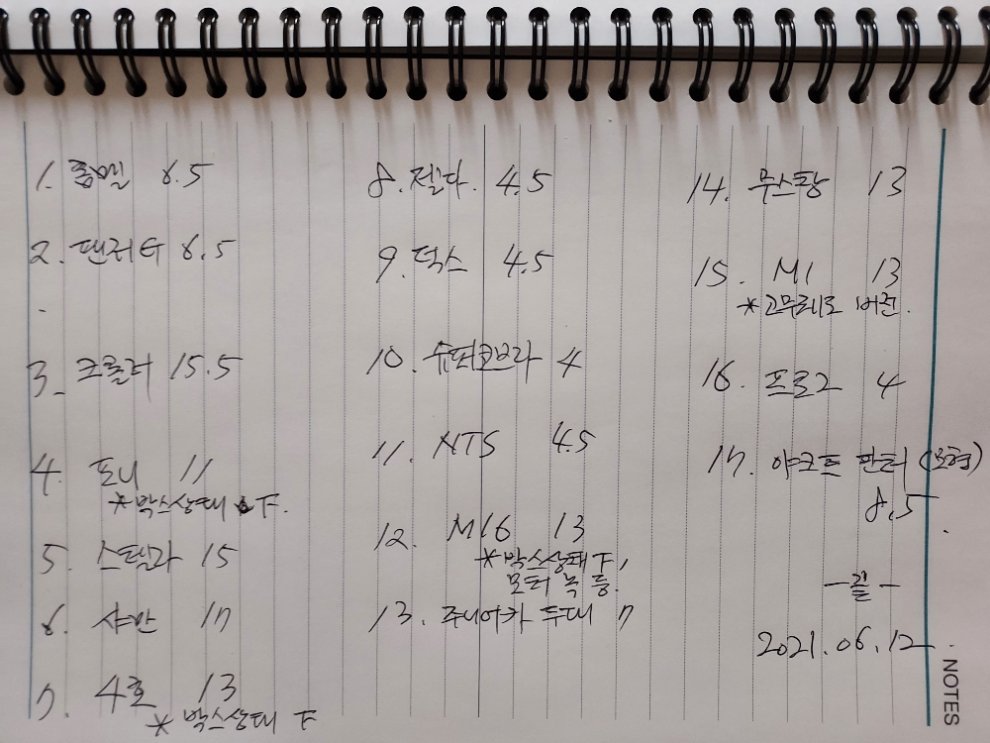 1. 롬멜 6.5
2. 팬저G 6.5
3. 크롤러 15.5
4. 포니 11
*박스상태 F.
5. 스텔라 15
6. 샤만 17
7. 4호 13
* 박스상태 F
8. 젤다. 4.5
9. 덕스 4.5
10. 슈퍼코브라 4
11. NTS 4.5
12. M16 13
*박스상태 F,
모터 녹 등.
13. 주니어카 두대 7
14. 무스탕 13
15. M1 13
*고무궤도 버젼.
16. 프로2 4
17. 야크트 판터 (소형)
8.5
- 끝 -
2021.06.12.
NOTES